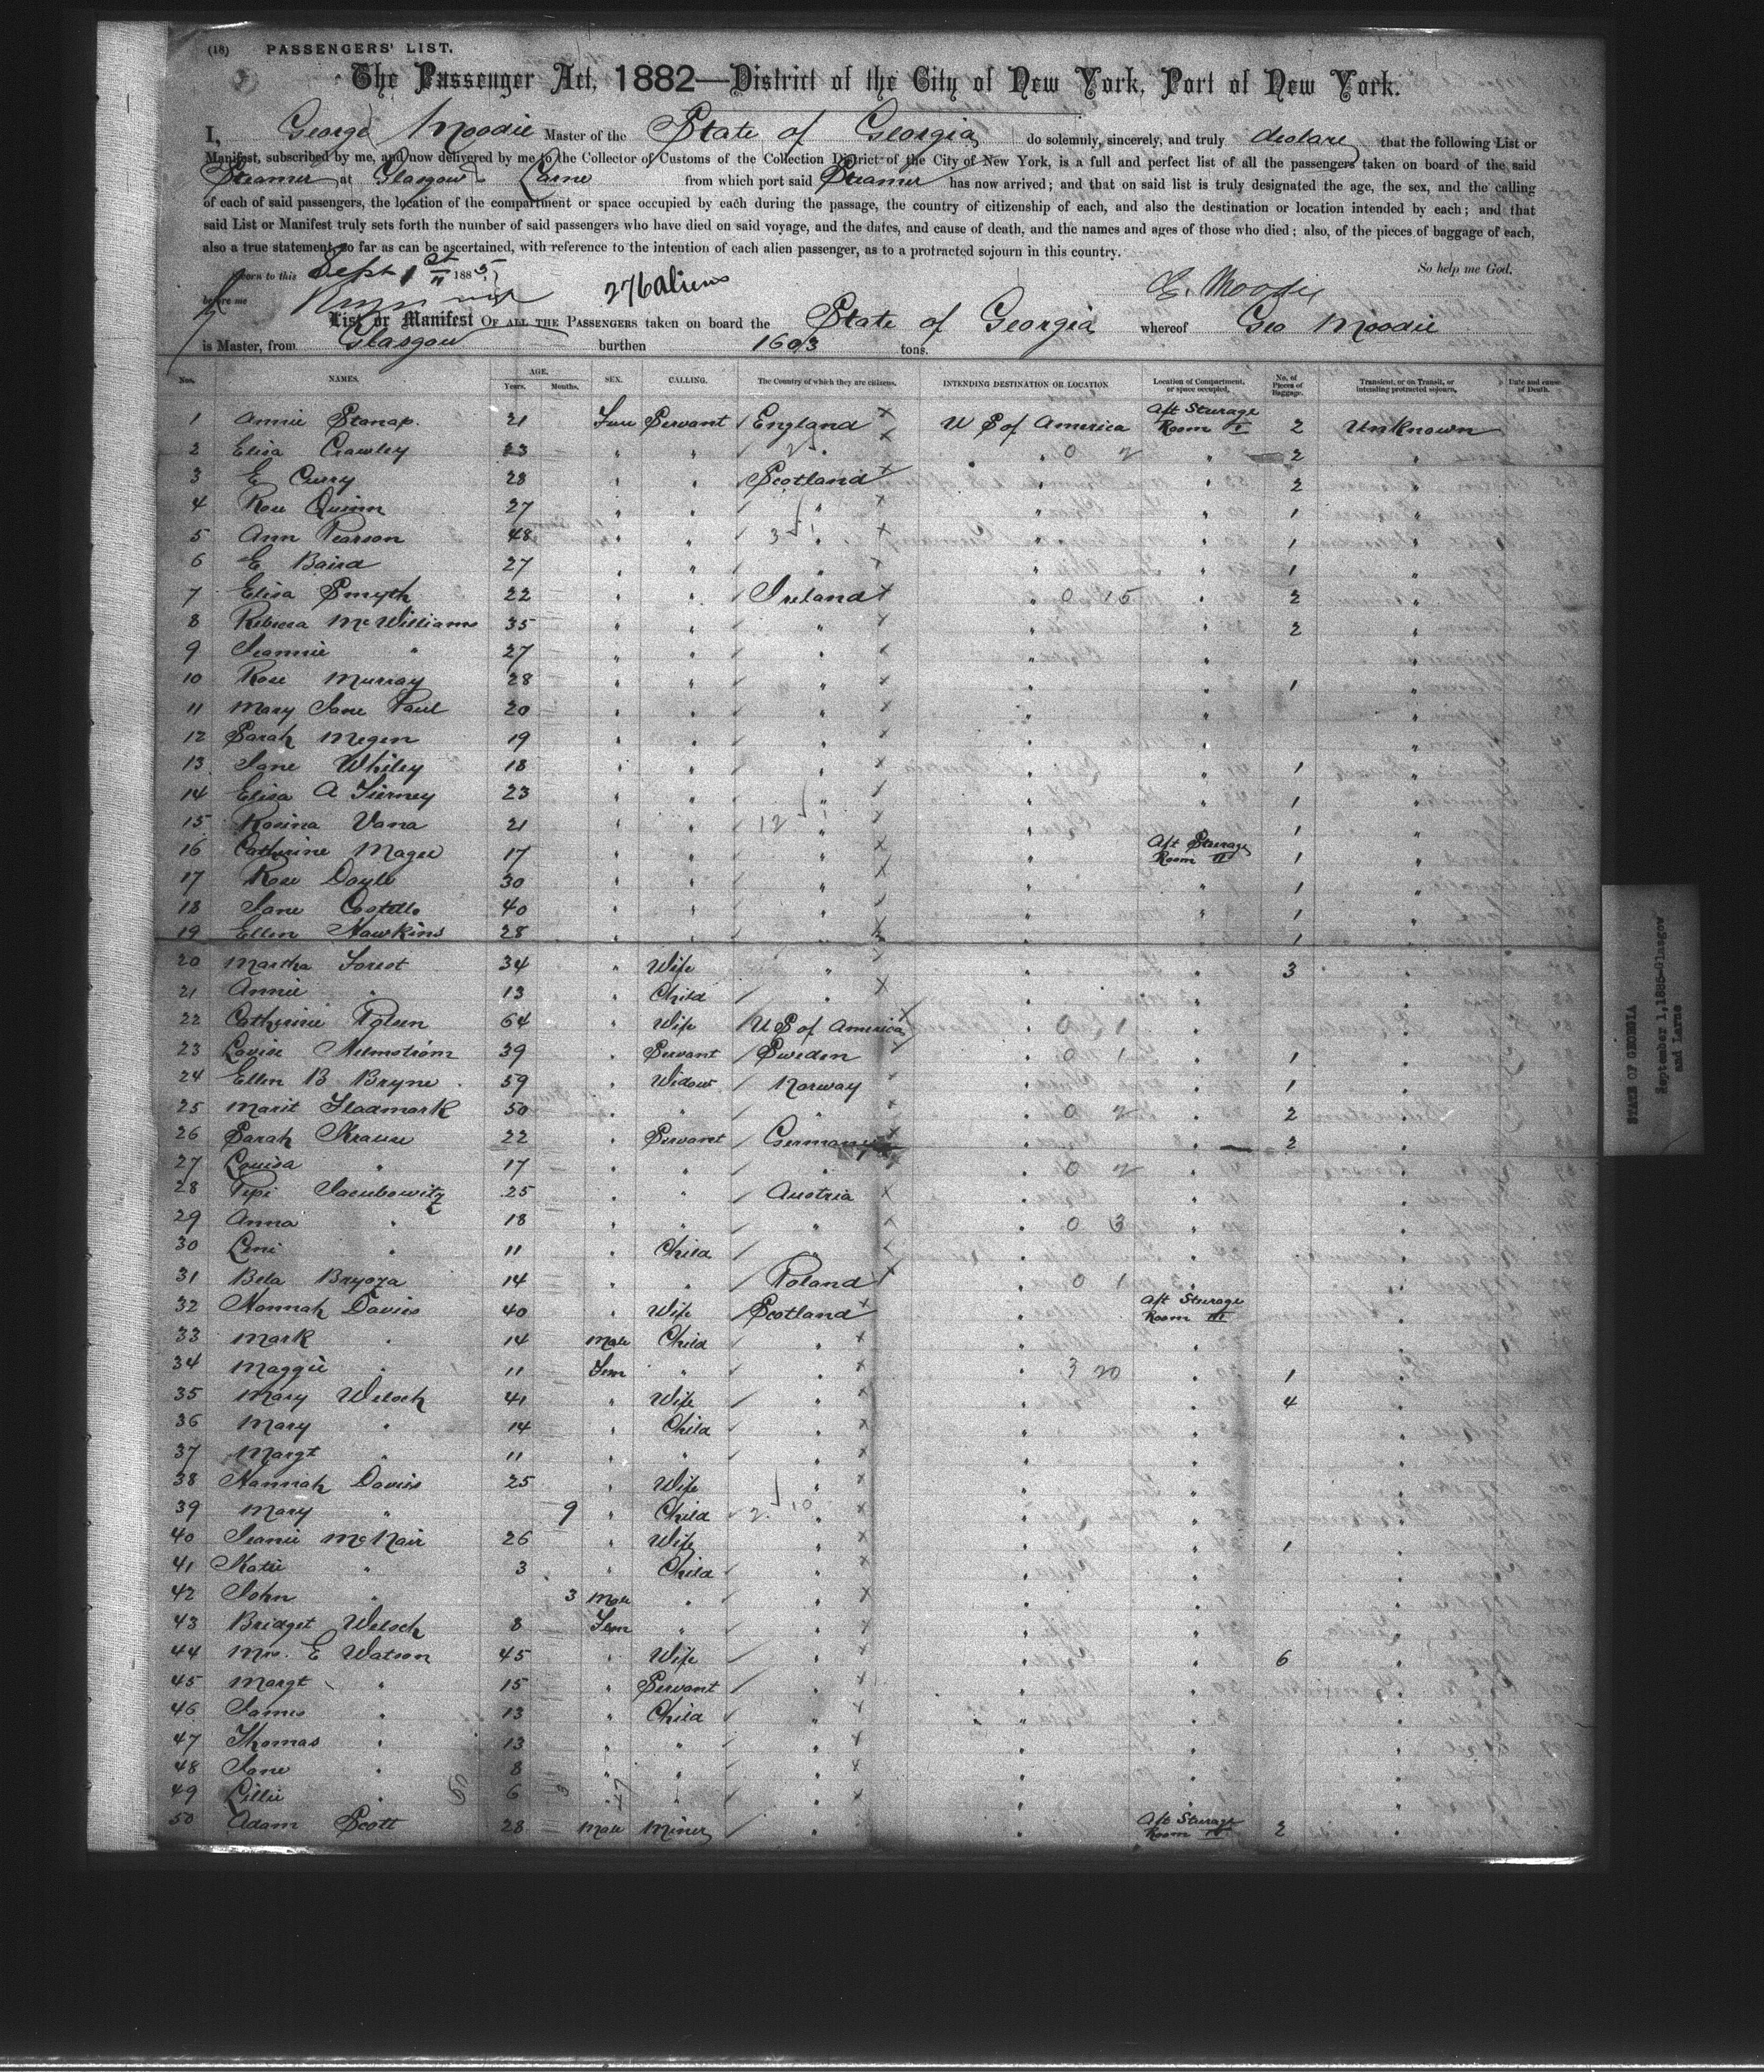 (18) PASSENGERS' LIST.
The Passenger Act, 1882—District of the City of New York, Port of New York.
I, George Moodie Master of the State of Georgia do solemnly, sincerely, and truly declare that the following List or
Manifest, subscribed by me, and now delivered by me to the Collector of Customs of the Collection District of the City of New York, is a full and perfect list of all the passengers taken on board of the said
Steamer at Glasgow & Larne from which port said Steamer has now arrived; and that on said list is truly designated the age, the sex, and the calling
of each of said passengers, the location of the compartment or space occupied by each during the passage, the country of citizenship of each, and also the destination or location intended by each; and that
said List or Manifest truly sets forth the number of said passengers who have died on said voyage, and the dates, and cause of death, and the names and ages of those who died; also, of the pieces of baggage of each,
also a true statement, so far as can be ascertained, with reference to the intention of each alien passenger, as to a protracted sojourn in this country.
So help me God.
Sworn to this Sept 1st 1885
before me
276 aliens
G. Moodie
List or Manifest OF ALL THE PASSENGERS taken on board the State of Georgia whereof Geo Moodie
is Master, from Glasgow burthen 1603 tons.
Nos. NAMES. AGE. Years. Months. SEX. CALLING. The Country of which they are citizens. INTENDING DESTINATION OR LOCATION Location of Compartment, or space occupied. No. of Pieces of Baggage. Transient, or on Transit, or intending protracted sojourn. Date and cause of Death.
1 Annie Stanap. 21 Fem Servant England U S of America Aft Sturage Room I 2 Unknown
2 Elisa Crawley 23 " " 2 " " 0 2 " 2 "
3 E Curry 28 " " Scotland " " 2 "
4 Rose Quinn 27 " " " " " 1 "
5 Ann Pearson 48 " " 3 " " " 1 "
6 E Baird 27 " " " " " 1 "
7 Elisa Smyth 22 " " Ireland " 0 15 " 2 "
8 Rebecca McWilliams 35 " " " " " 2 "
9 Jeannie " 27 " " " " " "
10 Rose Murray 28 " " " " " 1 "
11 Mary Jane Paul 20 " " " " " "
12 Sarah Megen 19 " " " " " "
13 Jane Whiley 18 " " " " " 1 "
14 Elisa A Tierney 23 " " " " " 1 "
15 Rosina Vana 21 " " 12 " " " 1 "
16 Catherine Magee 17 " " " " Aft Steerage Room II 1 "
17 Rose Doyle 30 " " " " " 1 "
18 Jane Costello 40 " " " " " 1 "
19 Ellen Hawkins 28 " " " " " 1 "
20 Martha Forest 34 " Wife " " " 3 "
21 Annie " 13 " Child " " " "
22 Catherine Polsen 64 " Wife U S of America " 0 1 " "
23 Lovise Helmstrom 39 " Servant Sweden " 0 1 " 1 "
24 Ellen B Bryne 59 " Widow Norway " " 1 "
25 Marit Fladmark 50 " " " " 0 2 " 2 "
26 Sarah Krause 22 " Servant Germany " " 2 "
27 Louisa " 17 " " " " 0 2 " "
28 Pepi Jacubowitz 25 " " Austria " " "
29 Anna " 18 " " " " 0 3 " "
30 Leni " 11 " Child " " " "
31 Bela Bryoza 14 " " Poland " 0 1 " "
32 Hannah Davies 40 " Wife Scotland " Aft Sturage Room III "
33 Mark " 14 Male Child " " " "
34 Maggie " 11 Fem " " " 3 20 " 1 "
35 Mary Welsch 41 " Wife " " " 4 "
36 Mary " 14 " Child " " " "
37 Margt " 11 " " " " " "
38 Hannah Davies 25 " Wife " " " "
39 Mary " 9 " Child 2 10 " " " "
40 Jeanie McNair 26 " Wife " " " 1 "
41 Katie " 3 " Child " " " "
42 John " 3 Male " " " " "
43 Bridget Welsch 8 Fem " " " " "
44 Mrs. E Watson 45 " Wife " " " 6 "
45 Margt " 15 " Servant " " " "
46 James " 13 " Child " " " "
47 Thomas " 13 " " " " " "
48 Jane " 8 " " " " " "
49 Lillie " 6 " " " " " "
50 Adam Scott 28 Male Miner " " Aft Sturage Room IV 2 "
STATE OF GEORGIA
September 1, 1885-Glasgow
and Larne